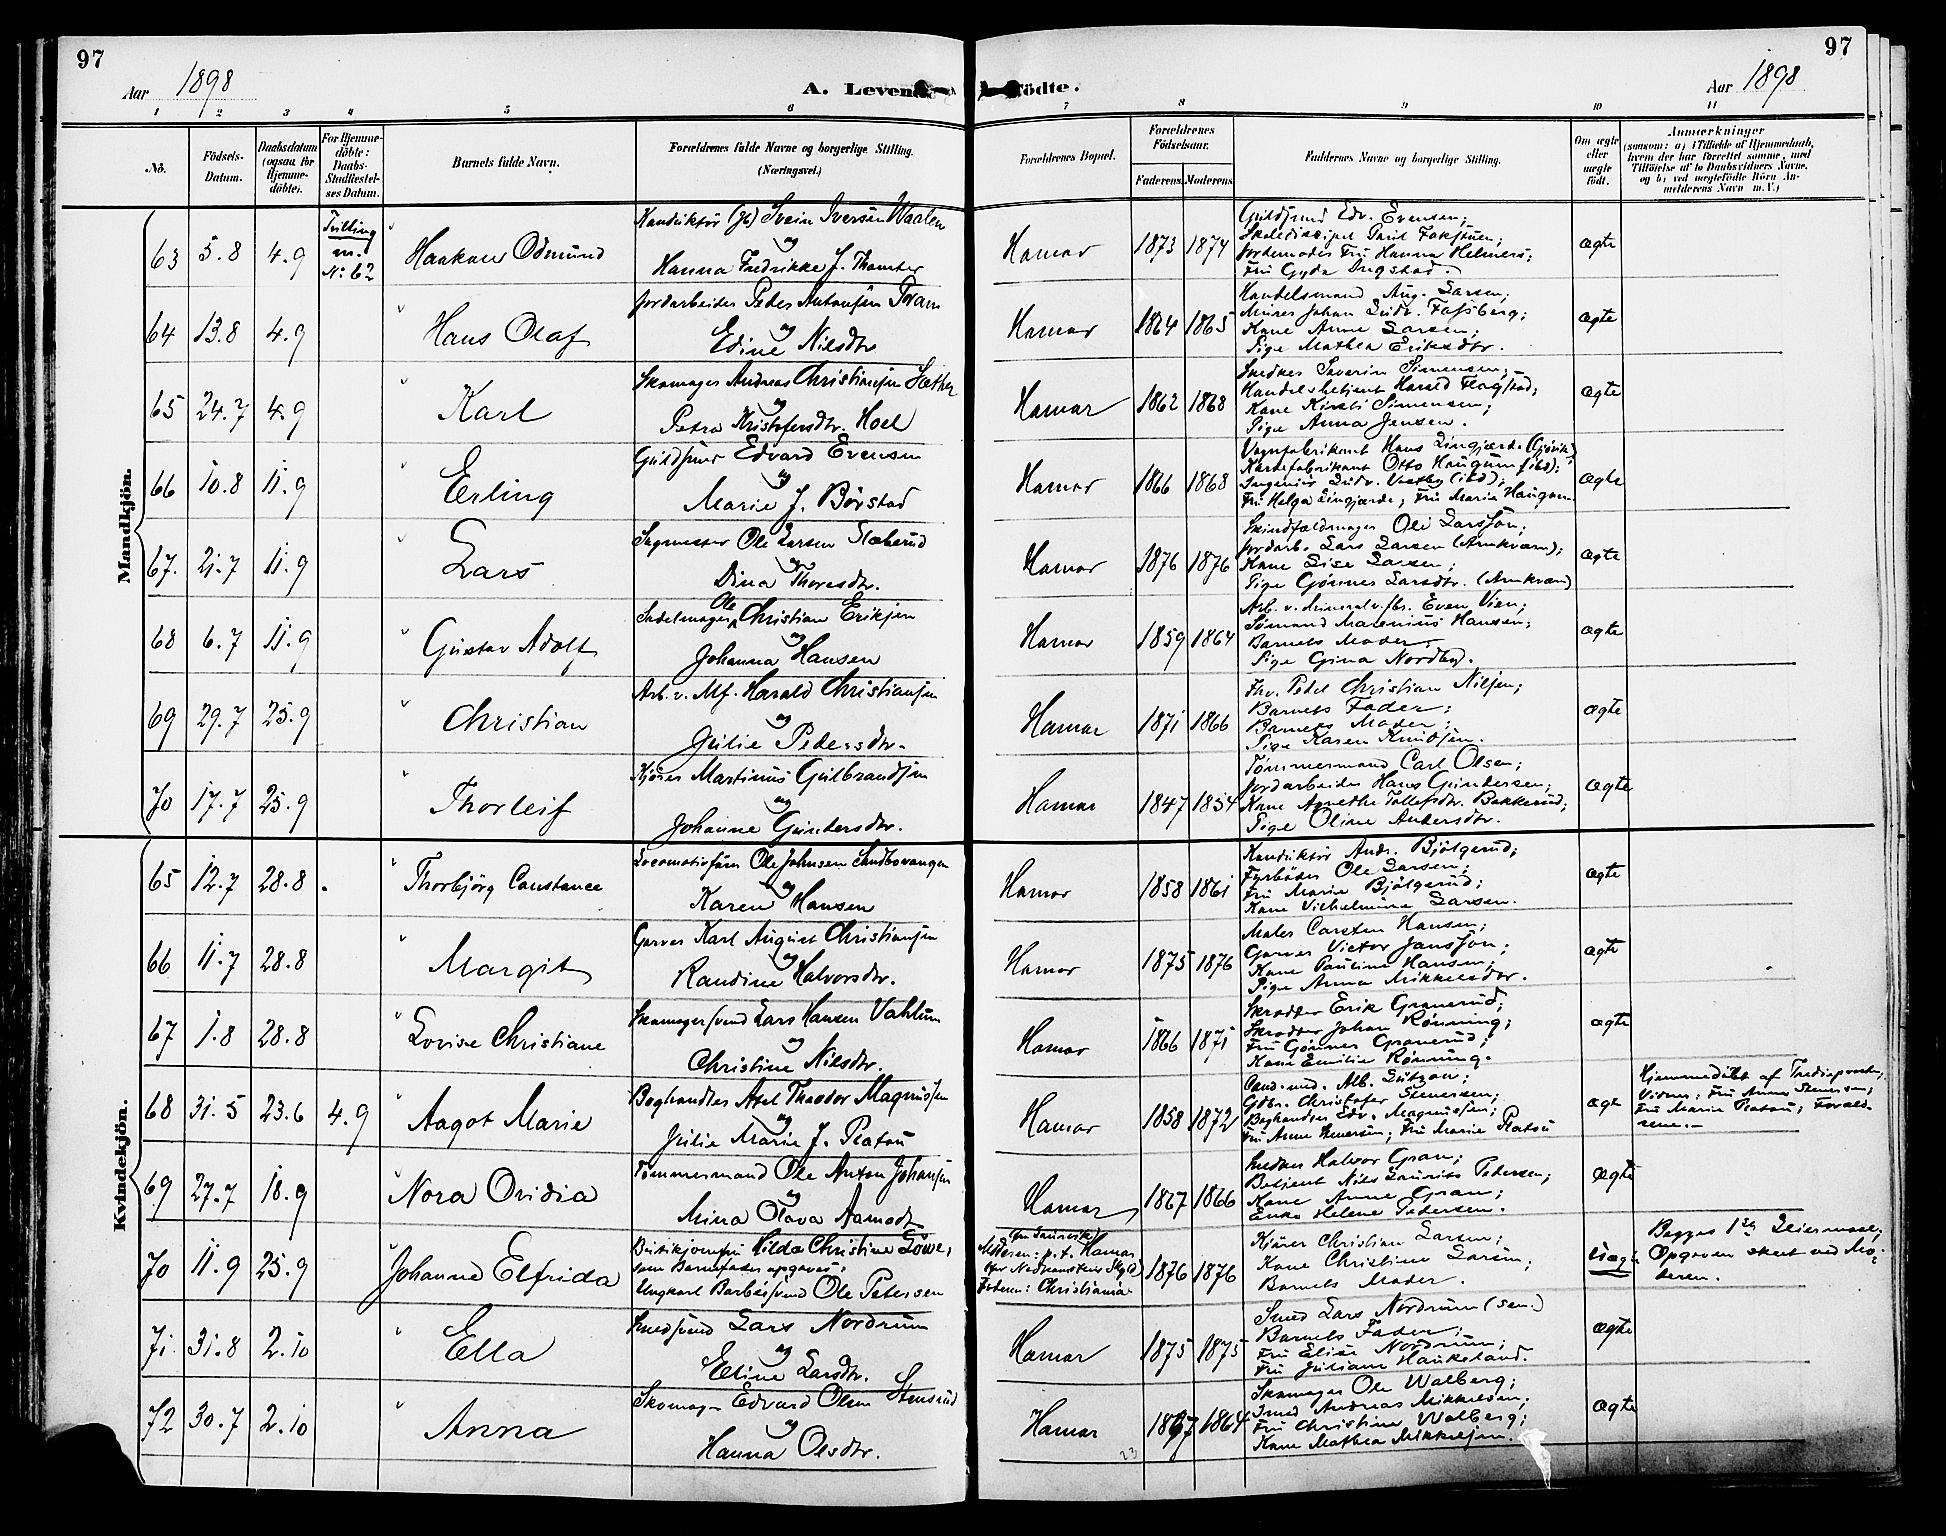 97
97
Aar 1898
A. Levende Fødte.
Aar 1898
1 2 3 4 5 6 7 8 9 10 11
No.
Födsels-Datum.
Daabsdatum (ogsaa for Hjemmedöbte).
For Hjemmedöbte: Daabs-Stadfæstelses Datum.
Barnets fulde Navn.
Forældrenes fulde Navne og borgerlige Stilling. (Næringsvei.)
Forældrenes Bopæl.
Forældrenes Födselsaar.
Faderens. Moderens.
Faddernes Navne og borgerlige Stilling.
Om ægte eller uægte födt.
Anmærkninger
(saasom: a) i Tilfælde af Hjemmedaab, hvem der har forrettet samme, med Tilföielse af to Daabsvidners Navne, og b) ved uægtefödte Börn Anmelderens Navn m. V.)
Mandkjön.
63 5.8 4.9 Tvilling m. No. 62 Haakon Odmund
Konduktør Svein Iversen Waalen
og
Hanna Fredrikke J. Thomter
Hamar 1873 1874
Guldsmed Edv. Evensen;
Skolediscipel
Jordemoder Fru Hanna Helmers;
Fru Gyda Ingstad.
ægte
64 13.8 4.9 Hans Olaf
Jordarbeider Peder Antonsen Fram
og
Edine Nilsdtr.
Hamar 1864 1865
Handelsmand Aug. Larsen;
Murer Johan Ludv. Fossberg;
Kone Anne Larsen;
Pige Mathea Eriksdtr.
ægte
65 24.7 4.9 Karl
Skomager Andreas Christiansen Sæther
og
Petra Kristofersdtr. Hoel
Hamar 1862 1868
Snedker Severin Simensen;
Handelsbetjent Harald Flagstad;
Kone Kirsti Simensen;
Pige Anna Jensen.
ægte
66 10.8 11.9 Erling
Guldsmed Edvard Evensen
og
Marie J. Børstad
Hamar 1866 1868
Vognfabrikant Hans Lingjærde (Gjøvik);
Kardefabrikant Otto Haugum (ibd);
Ingeniør Ludv. (ibd);
Fru Helga Lingjærde; Fru Marie Haugom
ægte
67. 21.7 11.9 Lars
Sagmester Ole Larsen Slæberud
og
Dina Thoresdtr.
Hamar 1876 1876
Skindfældmager Ole Larsson;
Jordarb. Lars Larsen (Arnkværn);
Kone Lise Larsen;
Pige Gønner Larsdtr. (Arnkværn)
ægte
68 6.7 11.9 Gustav Adolf
Sadelmager Ole Christian Eriksen
og
Johanna Hansen
Hamar 1859 1864
Arb. v. Mineralv.fbr. Even Vien;
Sømand Marenius Hansen;
Barnets Moder;
Pige Gina Nordby.
ægte
69 29.7 25.9 Christian
Arb. v. Mf. Harald Christiansen
og
Julie Pedersdtr.
Hamar 1871 1866
Fhv. Pedel Christian Nilsen;
Barnets Fader;
Barnets Moder;
Pige Karen Knudsen.
ægte
70 17.7 25.9 Thorleif
Kjører Martinus Gulbrandsen
og
Johanne Gundersdtr.
Hamar 1847 1854
Tømmermand Carl Olsen;
Jordarbeider Hans Gundersen;
Kone Agnethe Tollefsdtr. Bakkerud;
Pige Oline Andersdtr.
ægte
Kvindekjön.
65 12.7 28.8 Thorbjörg Constance
Locomotivfører Ole Johnsen Sandbovangen
og
Karen Hansen
Hamar 1858 1861
Konduktør Andr. Bjölgerud;
Fyrbøder Ole Larsen;
Fru Marie Bjölgerud;
Kone Vilhelmine Larsen.
ægte
66 11.7 28.8 Margit
Garver Karl August Christiansen
og
Randine Halvorsdtr.
Hamar 1875 1876
Maler Carsten Hansen;
Garver Victor Jansson;
Kone Pauline Hansen;
Pige Anna Mikkelsdtr.
ægte
67 1.8 28.8 Lovise Christiane
Skomagersvend Lars Hansen Vahlum
og
Christine Nilsdtr.
Hamar 1866 1871
Skrædder Erik Granerud;
Skrædder Johan Rønning;
Fru Gønner Granerud;
Kone Emilie Rønning.
ægte
68 31.5 23.6 4.9 Aagot Marie
Boghandler Axel Theodor Magnussen
og
Julie Marie J. Platou
Hamar 1858 1872
Cand. med. Alb. Lützow;
Gdbr. Christofer Stenersen;
Boghandler Edv. Magnussen;
Fru Anne Stenersen; Fru Marie Platou
ægte
Hjemmedöbt af Tredieprest;
Vidner: Fru Anne Stenersen;
Fru Marie Platou; Forældrene.
69 27.7 18.9 Nora Ovidia
Tømmermand Ole Anton Johansen
og
Mina Olava Aamodt
Hamar 1867 1866
Snedker Halvor Gran;
Betjent Nils Laurits Pedersen;
Kone Anne Gran;
Enke Helene Pedersen.
ægte
70 11.9 25.9 Johanne Elfrida
Butikjomfru Hilda Christine Löwe;
som Barnefader opgaves:
Ungkarl Barbersvend Ole Petersen
Moderen: p.t. Hamar
Faderen: Christiania
1876 1876
Kjører Christian Larsen;
Kone Christine Larsen;
Barnets Moder.
uægte
Begges 1ste Leiermaal;
Opgaven skeet ved Moderen.
71. 31.8 2.10 Ella
Smedsvend Lars Nordrum
og
Eline Larsdtr.
Hamar 1875 1875
Smed Lars Nordrum (sen.)
Barnets Fader;
Fru Elise Nordrum;
Fru Juliane Haukeland.
ægte
72 30.7 2.10 Anna
Skomager Edvard Olsen Stensrud
og
Hanna Olsdtr.
Hamar 1867 1864
Skomager Ole Walberg;
Smed Andreas Mikkelsen;
Fru Christine Walberg;
Kone Mathea Mikkelsen.
ægte
23